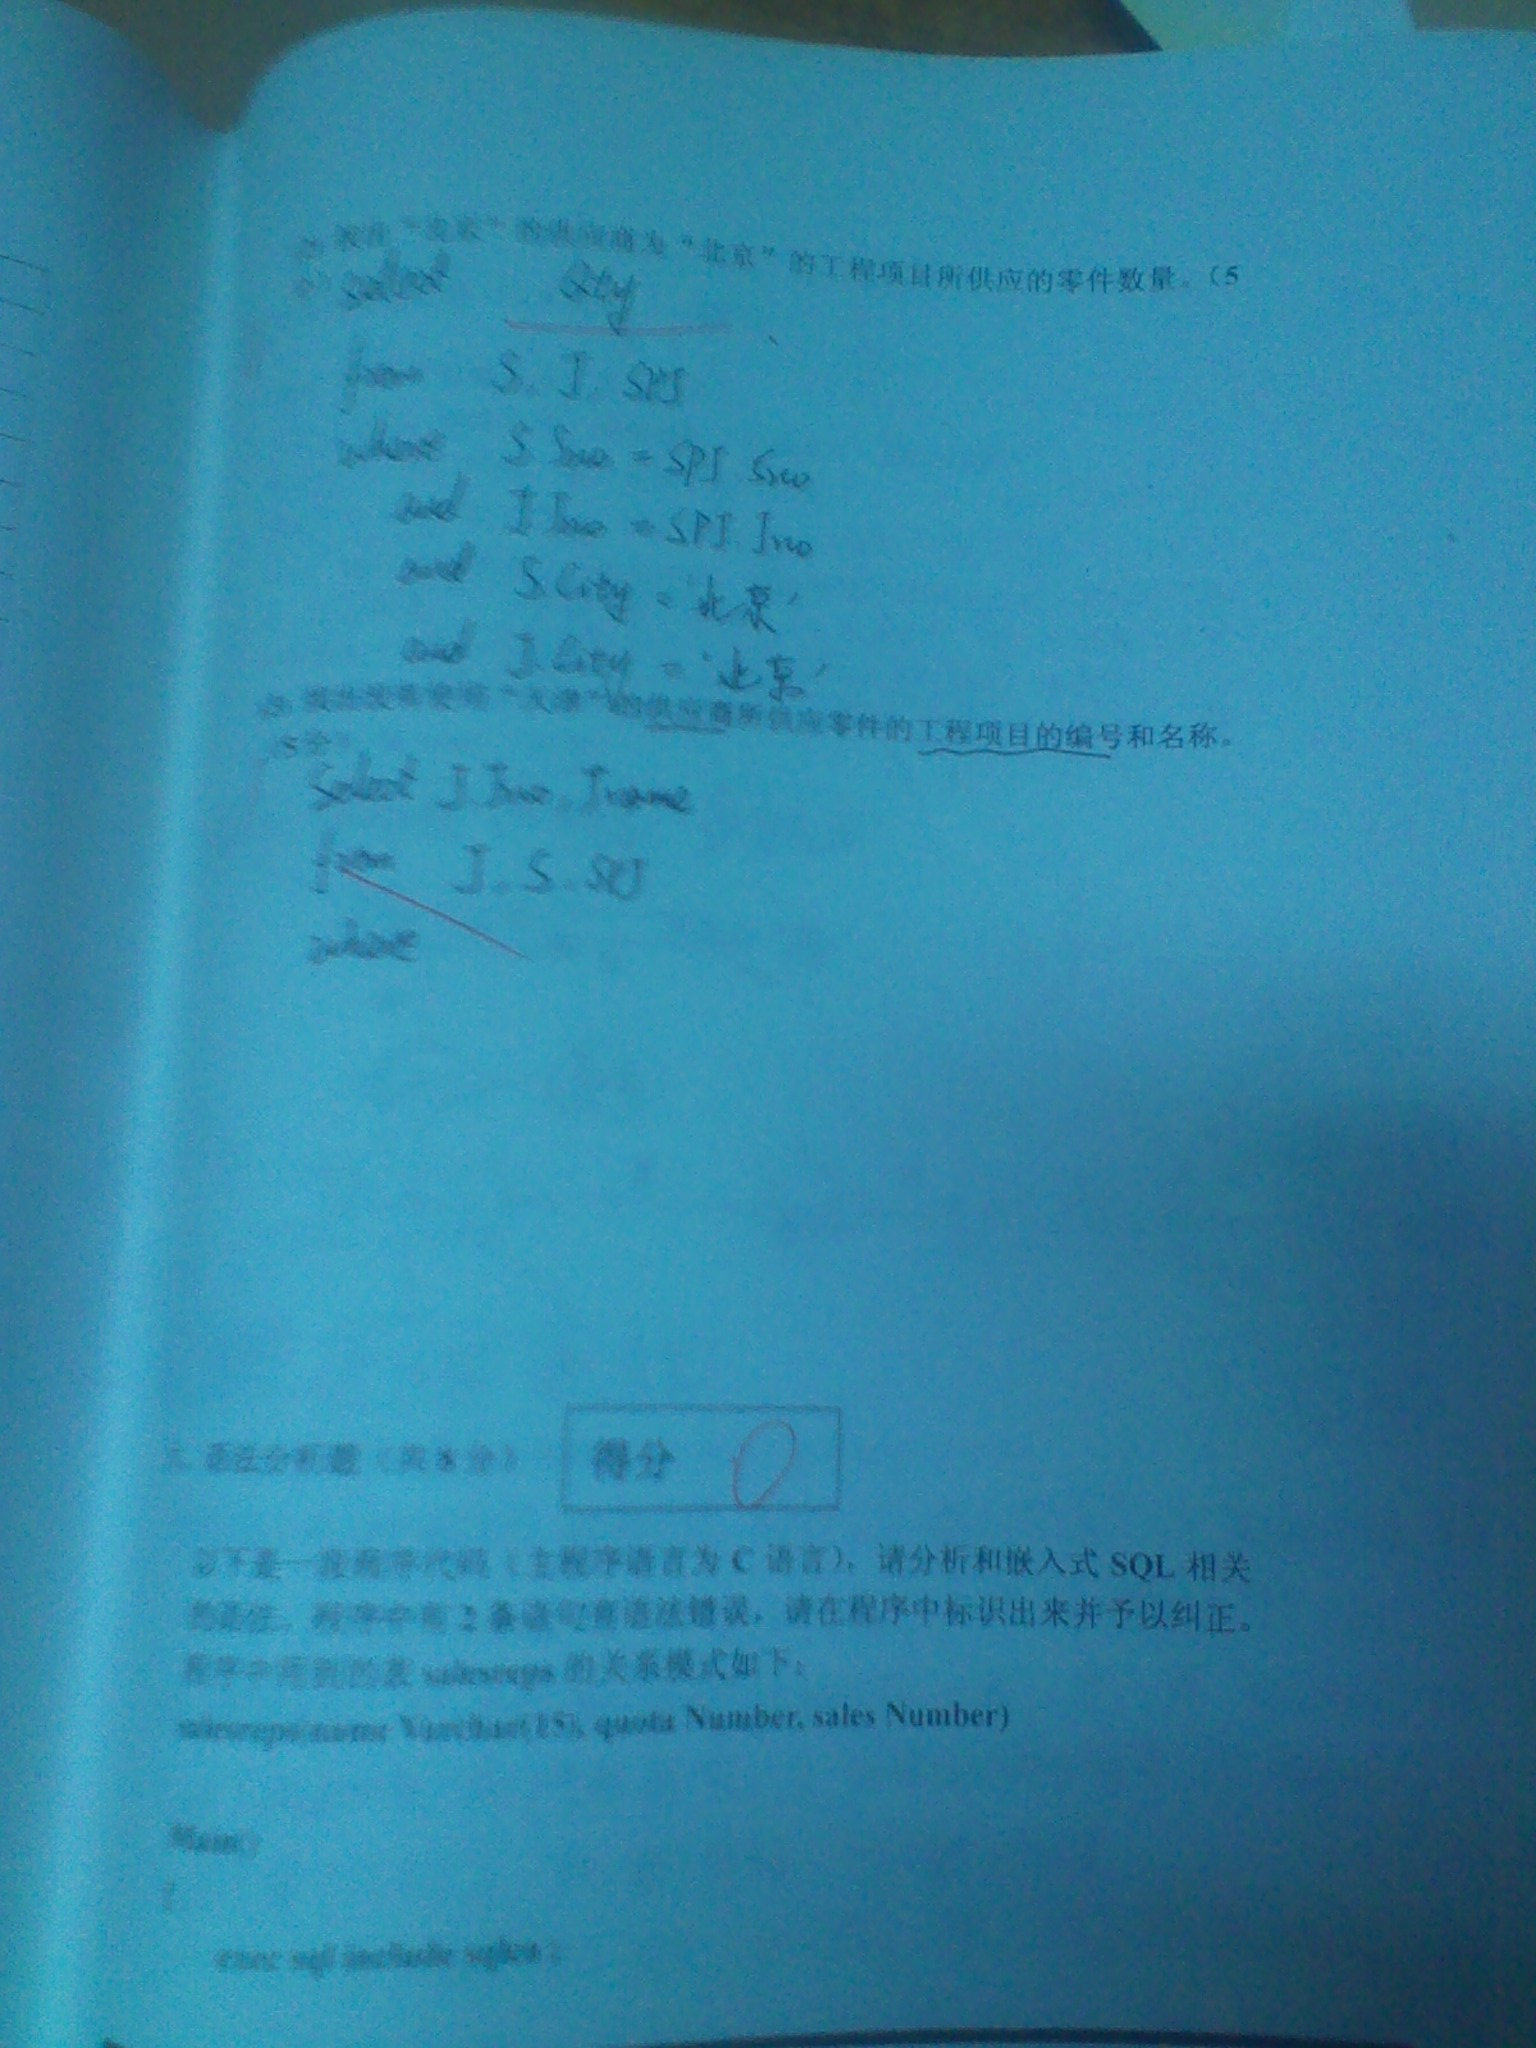 的供应商为“北京”的工程项目所供应的零件数量。（5
select Qty
from S, J, SPJ
where S.Sno = SPJ.Sno
and J.Jno = SPJ.Jno
and S.City = '北京'
and J.City = '北京'
“天津”的供应商所供应零件的工程项目的编号和名称。
5分
Select J.Jno, Jname
from J, S, SPJ
where
语法分析题（共8分） 得分 0
以下是一段程序代码（主程序语言为 C 语言），请分析和嵌入式 SQL 相关
的语法，程序中有 2 条语句有语法错误，请在程序中标识出来并予以纠正。
程序中用到的表 salesreps 的关系模式如下：
salesreps(name Varchar(15), quota Number, sales Number)
Main()
{
exec sql include sqlca ;